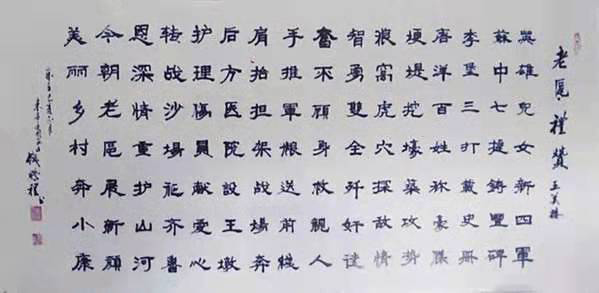 老區禮贊
英雄兒女新四軍
蘇中七捷鑄豐碑
李堡三打載史冊
唐洋百姓称豪
堤挖壕築攻势
浪窩虎穴探敵情
智勇雙全歼奸
奮不顧身救親人
手推軍粮送前线
肩抬担架战場奔
后方医院設王墩
护理傷員献愛心
转战沙場征齐魯
恩深情重护山河
今朝老區展新顏
美丽乡村奔小康